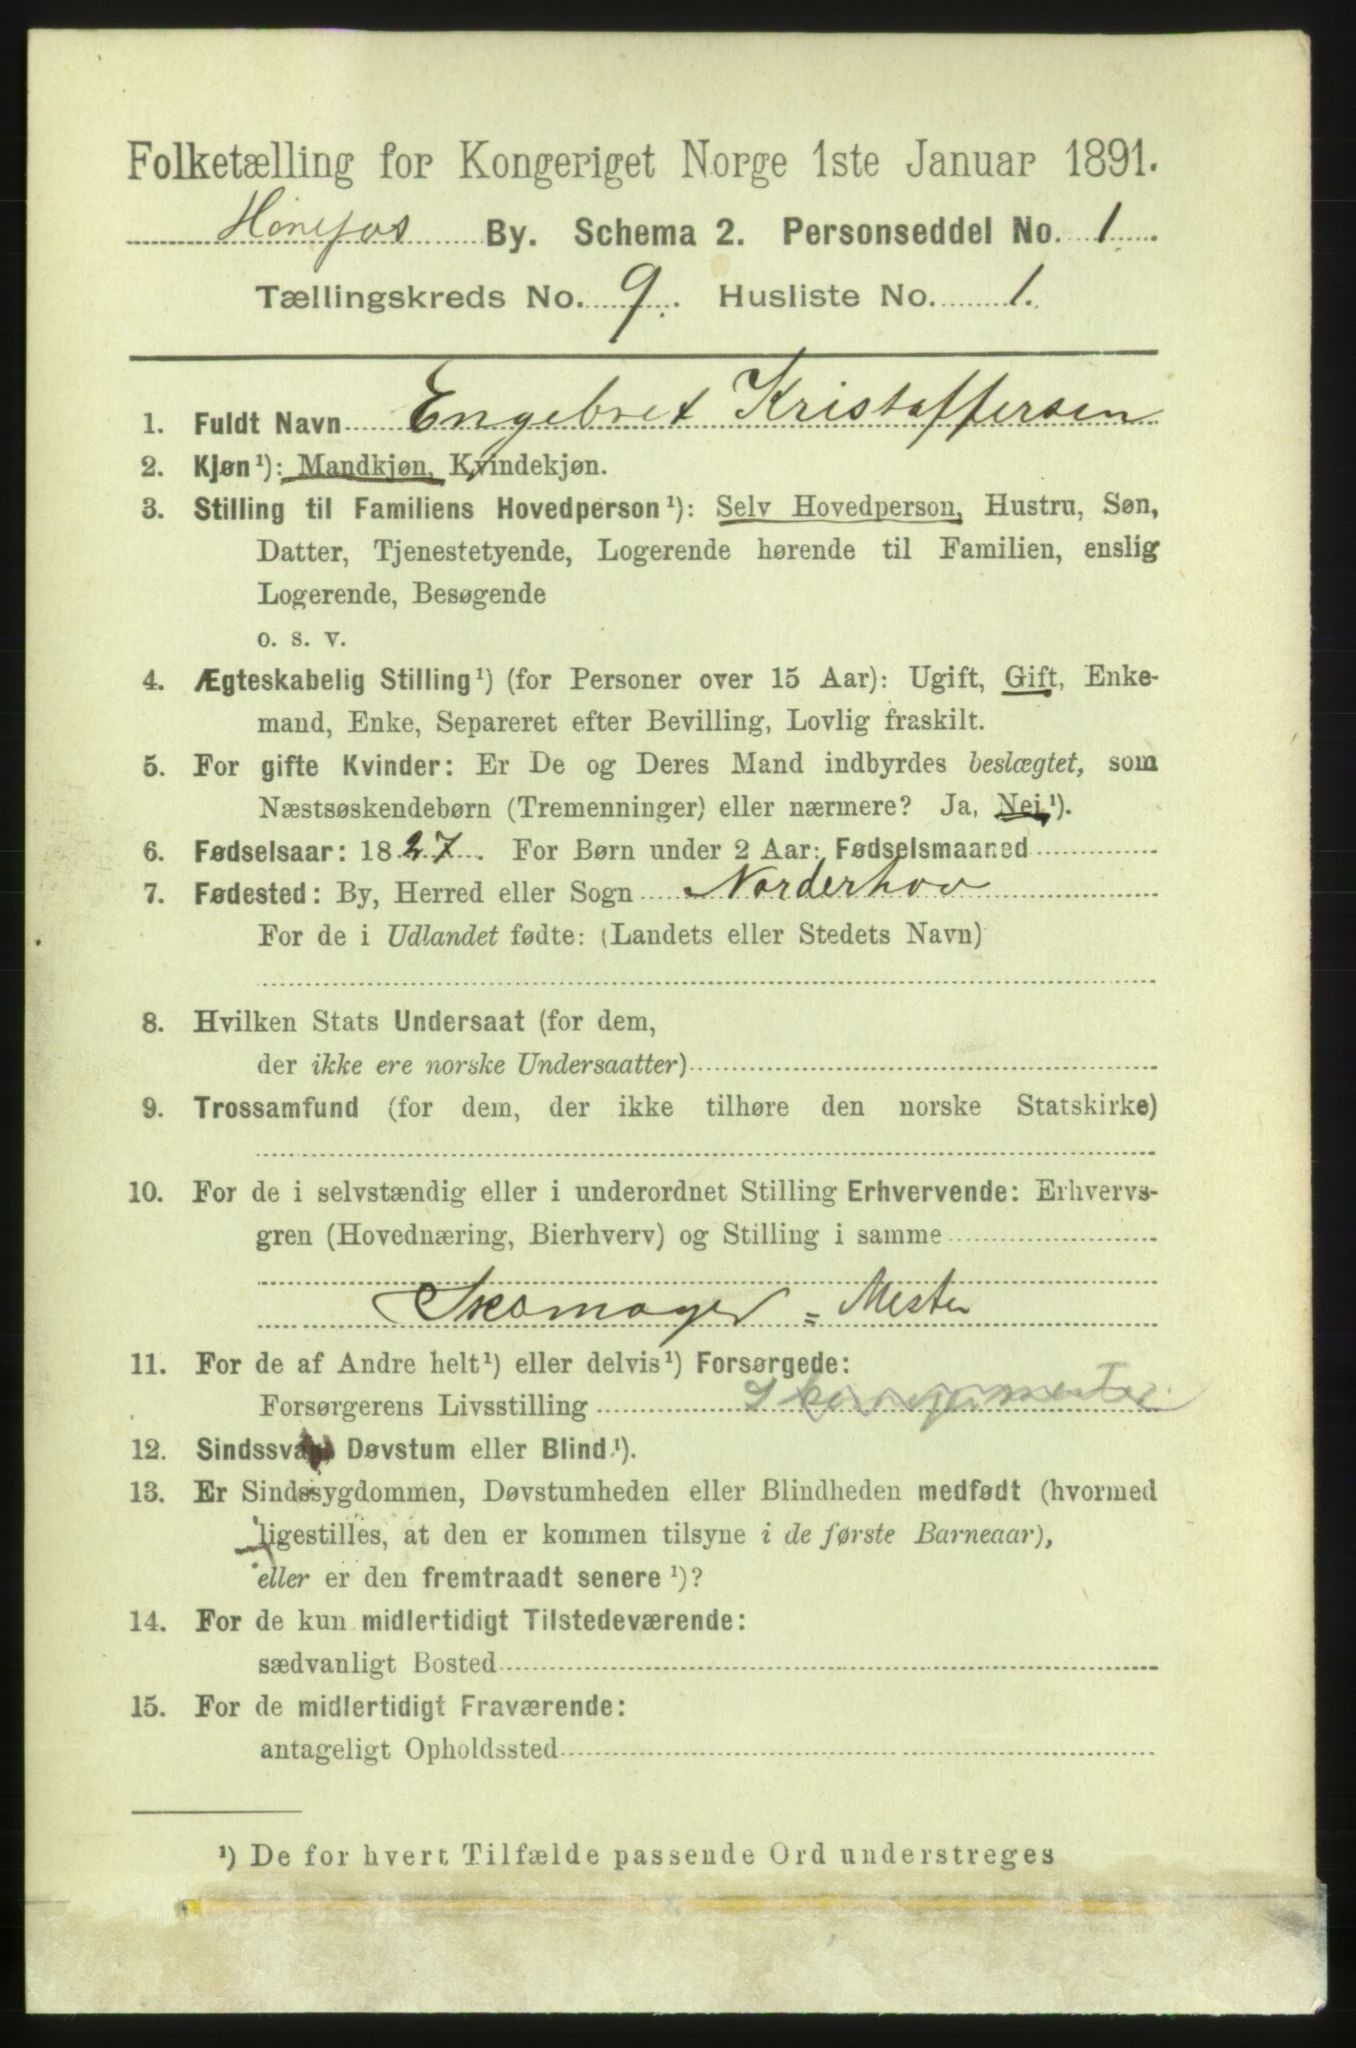 Folketælling for Kongeriget Norge 1ste Januar 1891.
Hønefos By. Schema 2. Personseddel No. 1
Tællingskreds No. 9. Husliste No. 1.
1. Fuldt Navn Engebret Kristoffersen
2. Kjøn¹): Mandkjøn, Kvindekjøn.
3. Stilling til Familiens Hovedperson¹): Selv Hovedperson, Hustru, Søn,
Datter, Tjenestetyende, Logerende hørende til Familien, enslig
Logerende, Besøgende
o. s. v.
4. Ægteskabelig Stilling¹) (for Personer over 15 Aar): Ugift, Gift, Enke-
mand, Enke, Separeret efter Bevilling, Lovlig fraskilt.
5. For gifte Kvinder: Er De og Deres Mand indbyrdes beslægtet, som
Næstsøskendebørn (Tremenninger) eller nærmere? Ja, Nei¹).
6. Fødselsaar: 1827. For Børn under 2 Aar: Fødselsmaaned
7. Fødested: By, Herred eller Sogn Norderhov
For de i Udlandet fødte: (Landets eller Stedets Navn)
8. Hvilken Stats Undersaat (for dem,
der ikke ere norske Undersaatter)
9. Trossamfund (for dem, der ikke tilhøre den norske Statskirke)
10. For de i selvstændig eller i underordnet Stilling Erhvervende: Erhvervs-
gren (Hovednæring, Bierhverv) og Stilling i samme
Skomager = Mester
11. For de af Andre helt¹) eller delvis¹) Forsørgede:
Forsørgerens Livsstilling
12. Sindssvag Døvstum eller Blind¹).
13. Er Sindssygdommen, Døvstumheden eller Blindheden medfødt (hvormed
ligestilles, at den er kommen tilsyne i de første Barneaar),
eller er den fremtraadt senere¹)?
14. For de kun midlertidigt Tilstedeværende:
sædvanligt Bosted
15. For de midlertidigt Fraværende:
antageligt Opholdssted
¹) De for hvert Tilfælde passende Ord understreges